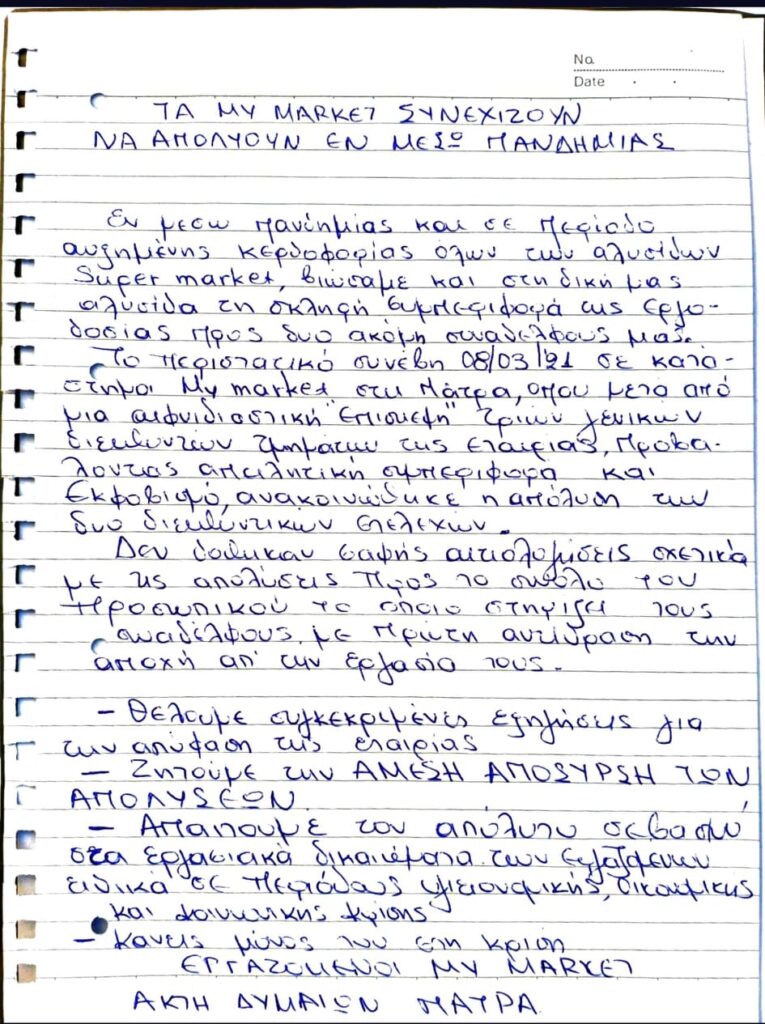 No
Date
ΤΑ MY MARKET ΣΥΝΕΧΙΖΟΥΝ
ΝΑ ΑΠΟΛΥΟΥΝ ΕΝ ΜΕΣΩ ΠΑΝΔΗΜΙΑΣ
Εν μεσω πανδημίας και σε περίοδο
αυξημένης κερδοφορίας όλων των αλυσίδων
Super market, βιώσαμε και στη δική μας
αλυσίδα τη σκληρή συμπεριφορά της εργο-
δοσίας προς δυο ακόμη συναδέλφους μας.
Το περιστατικό συνέβη 08/03/21 σε κατά-
στημα My market στη Πάτρα, όπου μετά από
μια αιφνιδιαστική "Επισκεψη" τριών γενικών
διευθυντών τμημάτων της εταιρίας, προβα-
λοντας απειλητική συμπεριφορά και
Εκφοβισμό, ανακοινώθηκε η απόλυση των
δυο διευθυντικών στελεχών.
Δεν δοθηκαν σαφής αιτιολογήσεις σχετικά
με τις απολύσεις προς το σύνολο του
προσωπικού το οποίο στηριζει τους
συναδέλφους, με πρώτη αντίδραση την
αποχή απ' την εργασία τους.
- Θέλουμε συγκεκριμένες εξηγήσεις για
την απόφαση της εταιρίας
- Ζητούμε την ΑΜΕΣΗ ΑΠΟΣΥΡΣΗ ΤΩΝ
ΑΠΟΛΥΣΕΩΝ.
- Απαιτουμε τον απόλυτο σεβασμό
στα εργασιακά δικαιώματα των εργαζομενων
ειδικά σε περιόδους υγειονομικής, οικονομικης
και κοινωνικης κρίσης
- Κανεις μόνος του στη κρίση
ΕΡΓΑΖΟΜΕΝΟΙ MY MARKET
ΑΚΤΗ ΔΥΜΑΙΩΝ ΠΑΤΡΑ